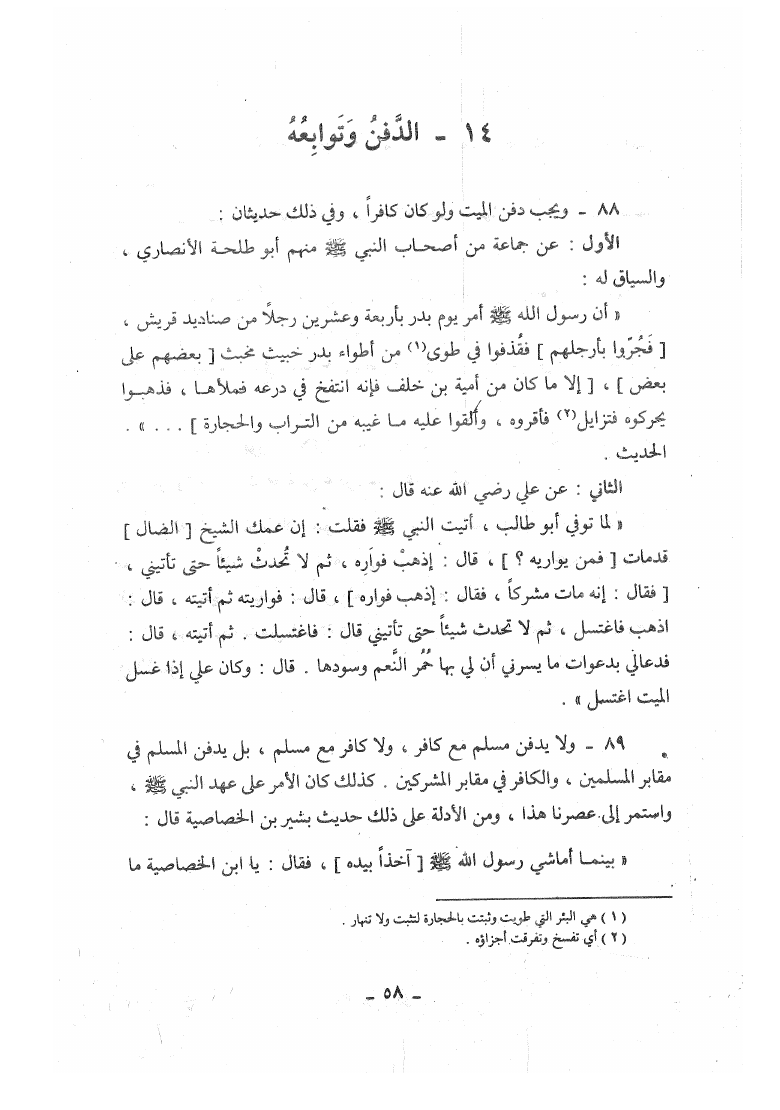 ١٤ ـ الدَّفنُ وَتَوابِعُهُ
٨٨ ـ ويجب دفن الميت ولو كان كافراً ، وفي ذلك حديثان :
الأول : عن جماعة من أصحاب النبي ﷺ منهم أبو طلحة الأنصاري ،
والسياق له :
« أن رسول الله ﷺ أمر يوم بدر بأربعة وعشرين رجلاً من صناديد قريش ،
[ فَجُرّوا بأرجلهم ] فقُذفوا في طوى(١) من أطواء بدر خبيث مخبث [ بعضهم على
بعض ] ، [ إلا ما كان من أمية بن خلف فإنه انتفخ في درعه فملأها ، فذهبوا
يحركوه فتزايل(٢) فأقروه ، وألقوا عليه ما غيبه من التراب والحجارة ] . . . » .
الحديث .
الثاني : عن علي رضي الله عنه قال :
« لما توفي أبو طالب ، أتيت النبي ﷺ فقلت : إن عمك الشيخ [ الضال ]
قدمات [ فمن يواريه ؟ ] ، قال : إذهبْ فوَارِه ، ثم لا تُحدثْ شيئاً حتى تأتيني ،
[ فقال : إنه مات مشركاً ، فقال : إذهب فواره ] ، قال : فواريته ثم أتيته ، قال :
اذهب فاغتسل ، ثم لا تحدث شيئاً حتى تأتيني قال : فاغتسلت . ثم أتيته ، قال :
فدعالي بدعوات ما يسرني أن لي بها حُمُر النَّعم وسودها . قال : وكان علي إذا غسل
الميت اغتسل » .
٨٩ ـ ولا يدفن مسلم مع كافر ، ولا كافر مع مسلم ، بل يدفن المسلم في
مقابر المسلمين ، والكافر في مقابر المشركين . كذلك كان الأمر على عهد النبي ﷺ ،
واستمر إلى عصرنا هذا ، ومن الأدلة على ذلك حديث بشير بن الخصاصية قال :
« بينما أماشي رسول الله ﷺ [ آخذاً بيده ] ، فقال : يا ابن الخصاصية ما
( ١ ) هي البئر التي طويت وثبتت بالحجارة لتثبت ولا تنهار .
( ٢ ) أي تفسخ وتفرقت أجزاؤه .
ـ ٥٨ ـ